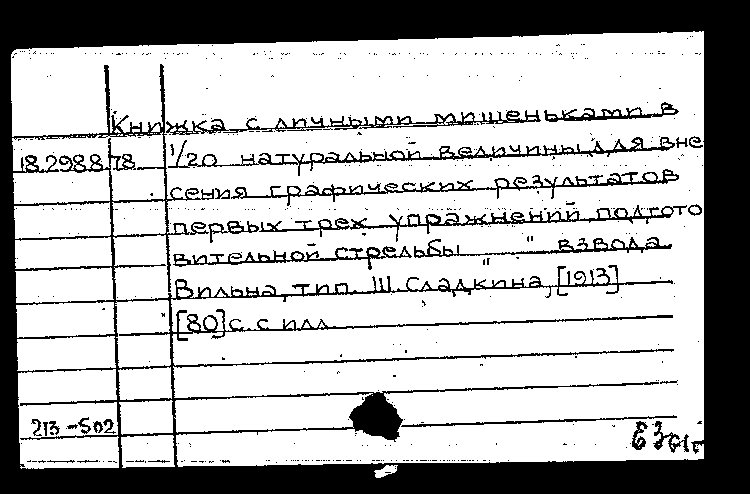 Книжка с личными мишеньками в
18.298878 1/20 натуральной величины для вне
сения графических результатов
первых трех упражнений подгото
вительной стрельбы " " взвода.
Вильна, тип. Ш. Сладкина, [1913]
[80] с. с илл
213-502